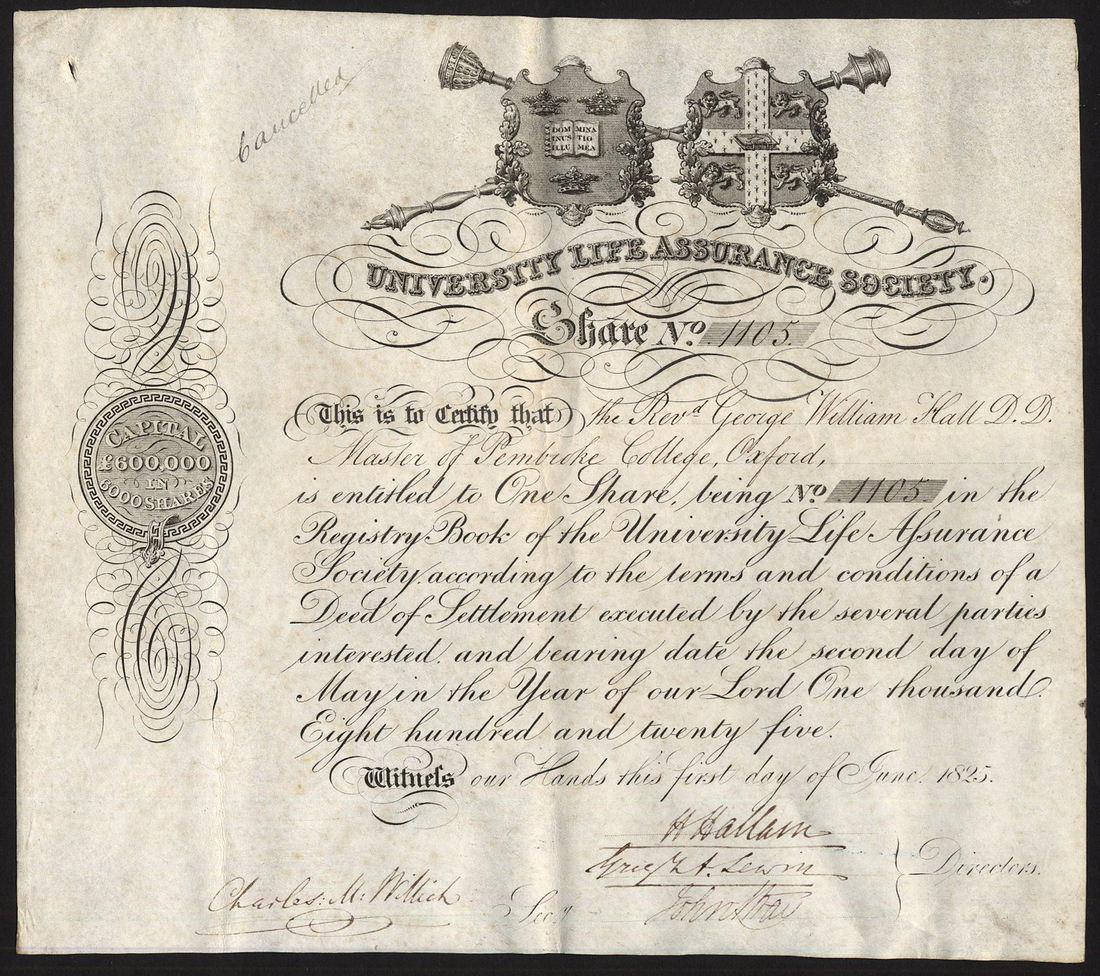 Cancelled
DOM MINA
INUS TIO
ILLU MEA
UNIVERSITY LIFE ASSURANCE SOCIETY.
Share No. 1105.
This is to Certify that the Revd George William Hall D.D.
Master of Pembroke College, Oxford,
is entitled to One Share, being No. 1105 in the
Registry Book of the University Life Aſsurance
Society, according to the terms and conditions of a
Deed of Settlement executed by the several parties
interested, and bearing date the second day of
May in the Year of our Lord One thousand
Eight hundred and twenty five.
Witneſs our Hands this first day of June 1825.
CAPITAL
£600,000
IN
6000 SHARES
H Hallam
A. Lewin
Directors.
Charles M. Willich Secy
John